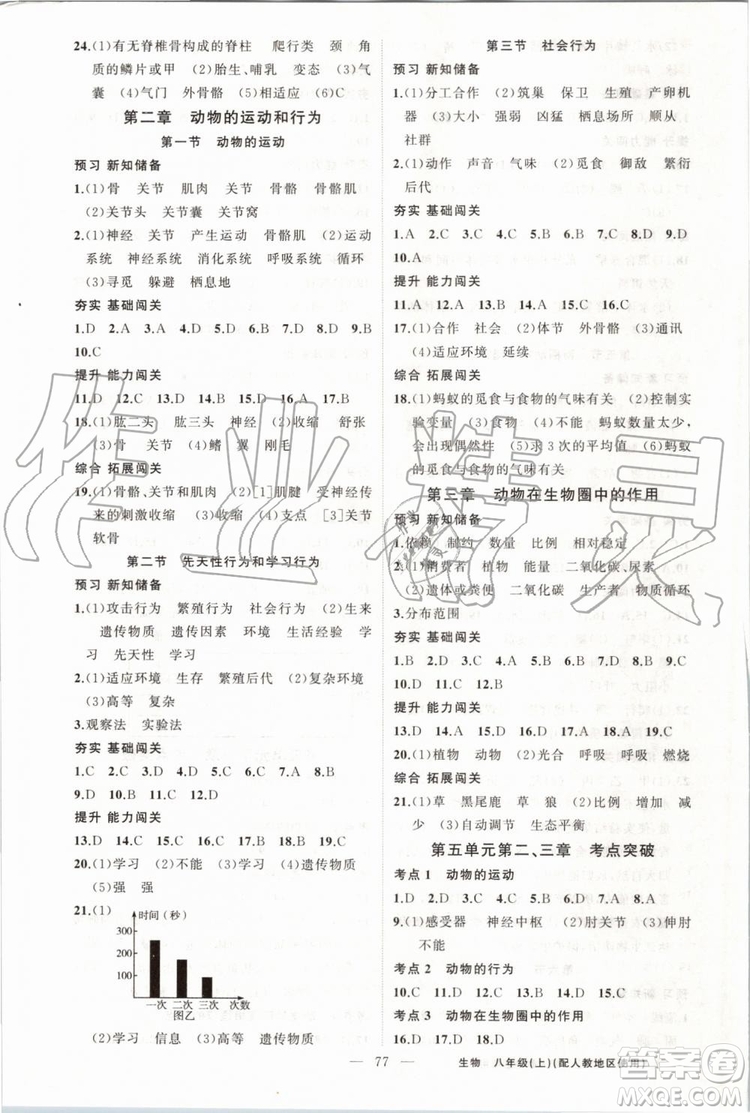 24.(1)有无脊椎骨构成的脊柱　爬行类　颈　角
质的鳞片或甲　(2)胎生、哺乳　变态　(3)气
囊　(4)气门　外骨骼　(5)相适应　(6)C
第二章　动物的运动和行为
第一节　动物的运动
预习 新知储备
1.(1)骨　关节　肌肉　关节　骨骼　骨骼肌
(2)关节头　关节囊　关节窝
2.(1)神经　关节　产生运动　骨骼肌　(2)运动
系统　神经系统　消化系统　呼吸系统　循环
(3)寻觅　躲避　栖息地
夯实 基础闯关
1.D　2.A　3.A　4.D　5.D　6.D　7.D　8.B　9.C
10.C
提升 能力闯关
11.D　12.C　13.D　14.D　15.A　16.A　17.B
18.(1)肱二头　肱三头　神经　(2)收缩　舒张
(3)骨　关节　(4)鳍　翼　刚毛
综合 拓展闯关
19.(1)骨骼、关节和肌肉　(2)[1]肌腱　受神经传
来的刺激收缩　(3)收缩　(4)支点　[3]关节
软骨
第二节　先天性行为和学习行为
预习 新知储备
1.(1)攻击行为　繁殖行为　社会行为　(2)生来
遗传物质　遗传因素　环境　生活经验　学
习　先天性　学习
2.(1)适应环境　生存　繁殖后代　(2)复杂环境
(3)高等　复杂
3.观察法　实验法
夯实 基础闯关
1.C　2.C　3.B　4.C　5.B　6.C　7.D　8.C
9.D　10.D　11.C　12.C
提升 能力闯关
13.D　14.D　15.C　16.B　17.C　18.C　19.D
20.(1)学习　(2)不能　(3)学习　(4)遗传物质
(5)强　强
21.(1)
时间（秒）
300
200
100
一次　二次　三次　次数
图乙
(2)学习　信息　(3)高等　遗传物质
第三节　社会行为
预习 新知储备
1.(1)分工合作　(2)筑巢　保卫　生殖　产卵机
器　(3)大小　强弱　凶猛　栖息场所　顺从
社群
2.(1)动作　声音　气味　(2)觅食　御敌　繁衍
后代
夯实 基础闯关
1.A　2.C　3.C　4.C　5.B　6.D　7.C　8.D　9.D
10.A
提升 能力闯关
11.A　12.A　13.C　14.C　15.B　16.C
17.(1)合作　社会　(2)体节　外骨骼　(3)通讯
(4)适应环境　延续
综合 拓展闯关
18.(1)蚂蚁的觅食与食物的气味有关　(2)控制实
验变量　(3)食物　(4)不能　蚂蚁数量太少，
会出现偶然性　(5)求3次的平均值　(6)蚂蚁
的觅食与食物的气味有关
第三章　动物在生物圈中的作用
预习 新知储备
1.依赖　制约　数量　比例　相对稳定
2.(1)消费者　植物　能量　二氧化碳、尿素
(2)遗体或粪便　二氧化碳　生产者　物质循环
3.分布范围
夯实 基础闯关
1.B　2.C　3.D　4.D　5.A　6.B　7.C　8.C　9.D
10.D　11.C　12.B
提升 能力闯关
13.D　14.D　15.A　16.C　17.D　18.D　19.C
20.(1)植物　动物　(2)光合　呼吸　呼吸　燃烧
综合 拓展闯关
21.(1)草　黑尾鹿　草　狼　(2)比例　增加　减
少　(3)自动调节　生态平衡
第五单元第二、三章　考点突破
考点 1　动物的运动
1.D　2.D　3.C　4.D　5.B　6.D　7.A　8.D
9.(1)感受器　神经中枢　(2)肘关节　(3)伸肘
不能
考点 2　动物的行为
10.C　11.D　12.C　13.C　14.A　15.C
考点 3　动物在生物圈中的作用
16.D　17.D　18.D　19.D　20.C　21.D
77
生物　八年级(上)(配人教地区使用)
作业精灵
答案君